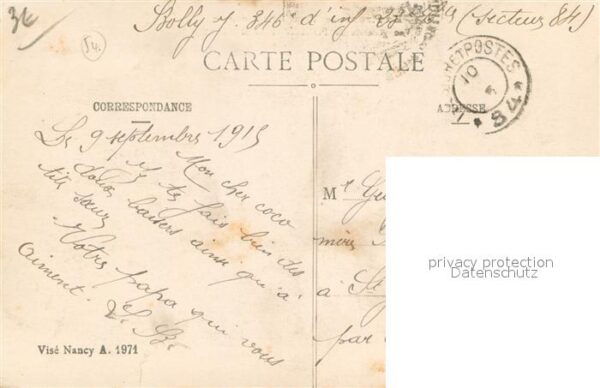 36
Bolly J. 346e d'inf 23e (secteur 84)
54.
CARTE POSTALE
TRESOR ET POSTES
10
* 84 *
CORRESPONDANCE
ADRESSE
Le 9 septembre 1915
Mon cher coco
Je te fais bien des
doux baisers ainsi qu'à
tite sœur
Votre papa qui vous
aiment.
Mr
mère
à St
par
privacy protection
Datenschutz
Visé Nancy A. 1971